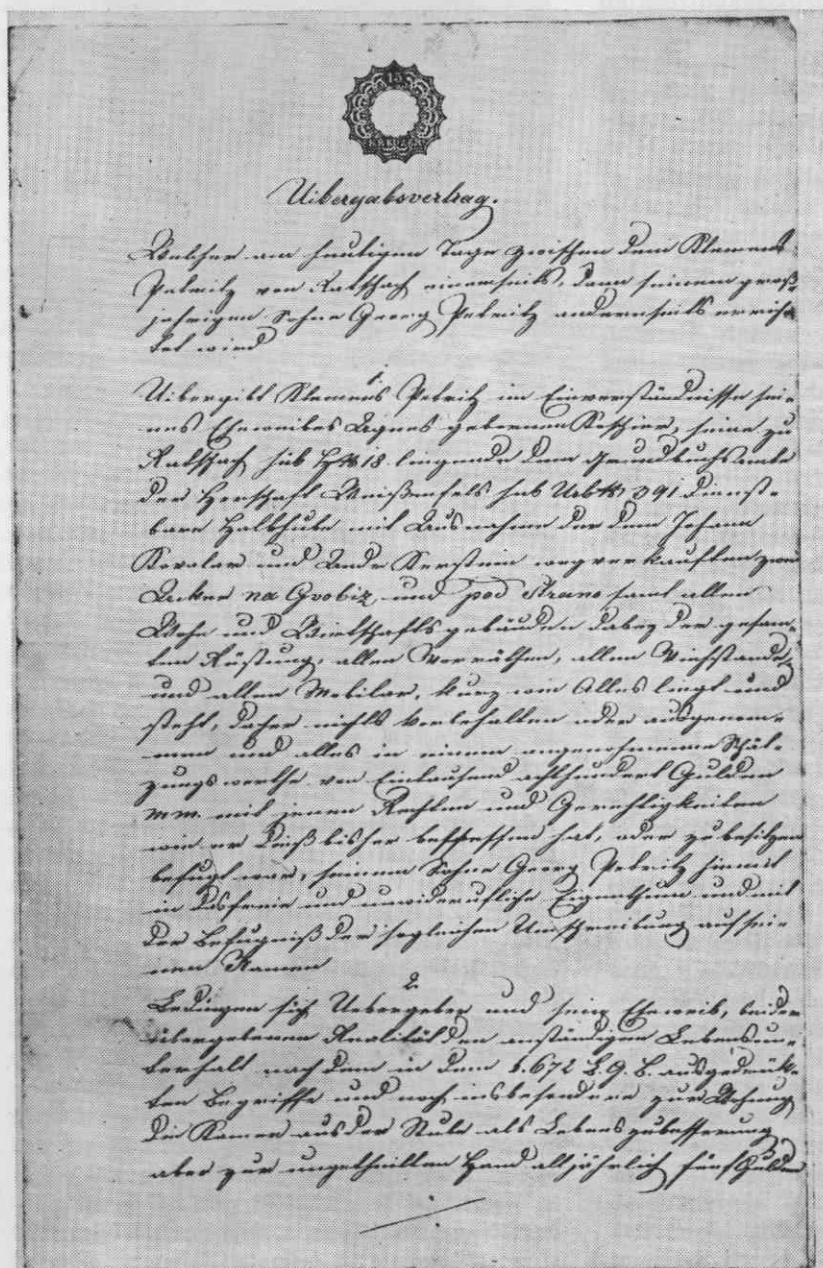 15
KREUZER
Uibergabsvertrag.
Welcher am heutigen Tage zwischen dem Klemens
Petritz von Ratschach einerseits, dann seinem groß-
jährigen Sohne Georg Petritz andernseits errich-
tet wird
1.
Uibergibt Klemens Petritz im Einverständnisse sei-
nes Eheweibes Agnes gebornen Koschier, seine zu
Ratschach sub H№ 18 liegende dem Grundbuchsamte
der Herrschaft Weißenfels sub Urb№ 391 dienst-
bare Halbhube mit Ausnahme der dem Johann
und Kerstein wegverkauften zwei
Aecker na Grobiz, und pod Strano samt allen
Wohn und Wirthschaftsgebäuden dabey der gesam-
ten Rüstung, allen Vorräthen, allem Viehstande,
und allem Mobilar, kurz wie Alles liegt und
steht, daher nichts vorbehalten oder ausgenom-
men und alles in einem angenohmenen Schät-
zungswerthe von Eintausend achthundert Gulden
mm. mit jenen Rechten und Gerechtigkeiten
wie er dieß bisher besessen hat, oder zu besitzen
befugt war, seinem Sohne Georg Petritz hiemit
in das freie und unwiderufliche Eigenthum und mit
der Befugniß der sogleichen Umschreibung auf sei-
nen Namen
2.
Bedingen sich Uebergeber und sein Eheweib, bei der
übergebenen Realität den anständigen Lebensun-
terhalt nach dem in dem §. 672 b. G. B. ausgedrük-
ten Begriffe und noch insbesondere zur Wohnung
die Kamer aus der Stube als Lebenszubesserung
aber zur ungetheilten Hand alljährlich fünf Gulden